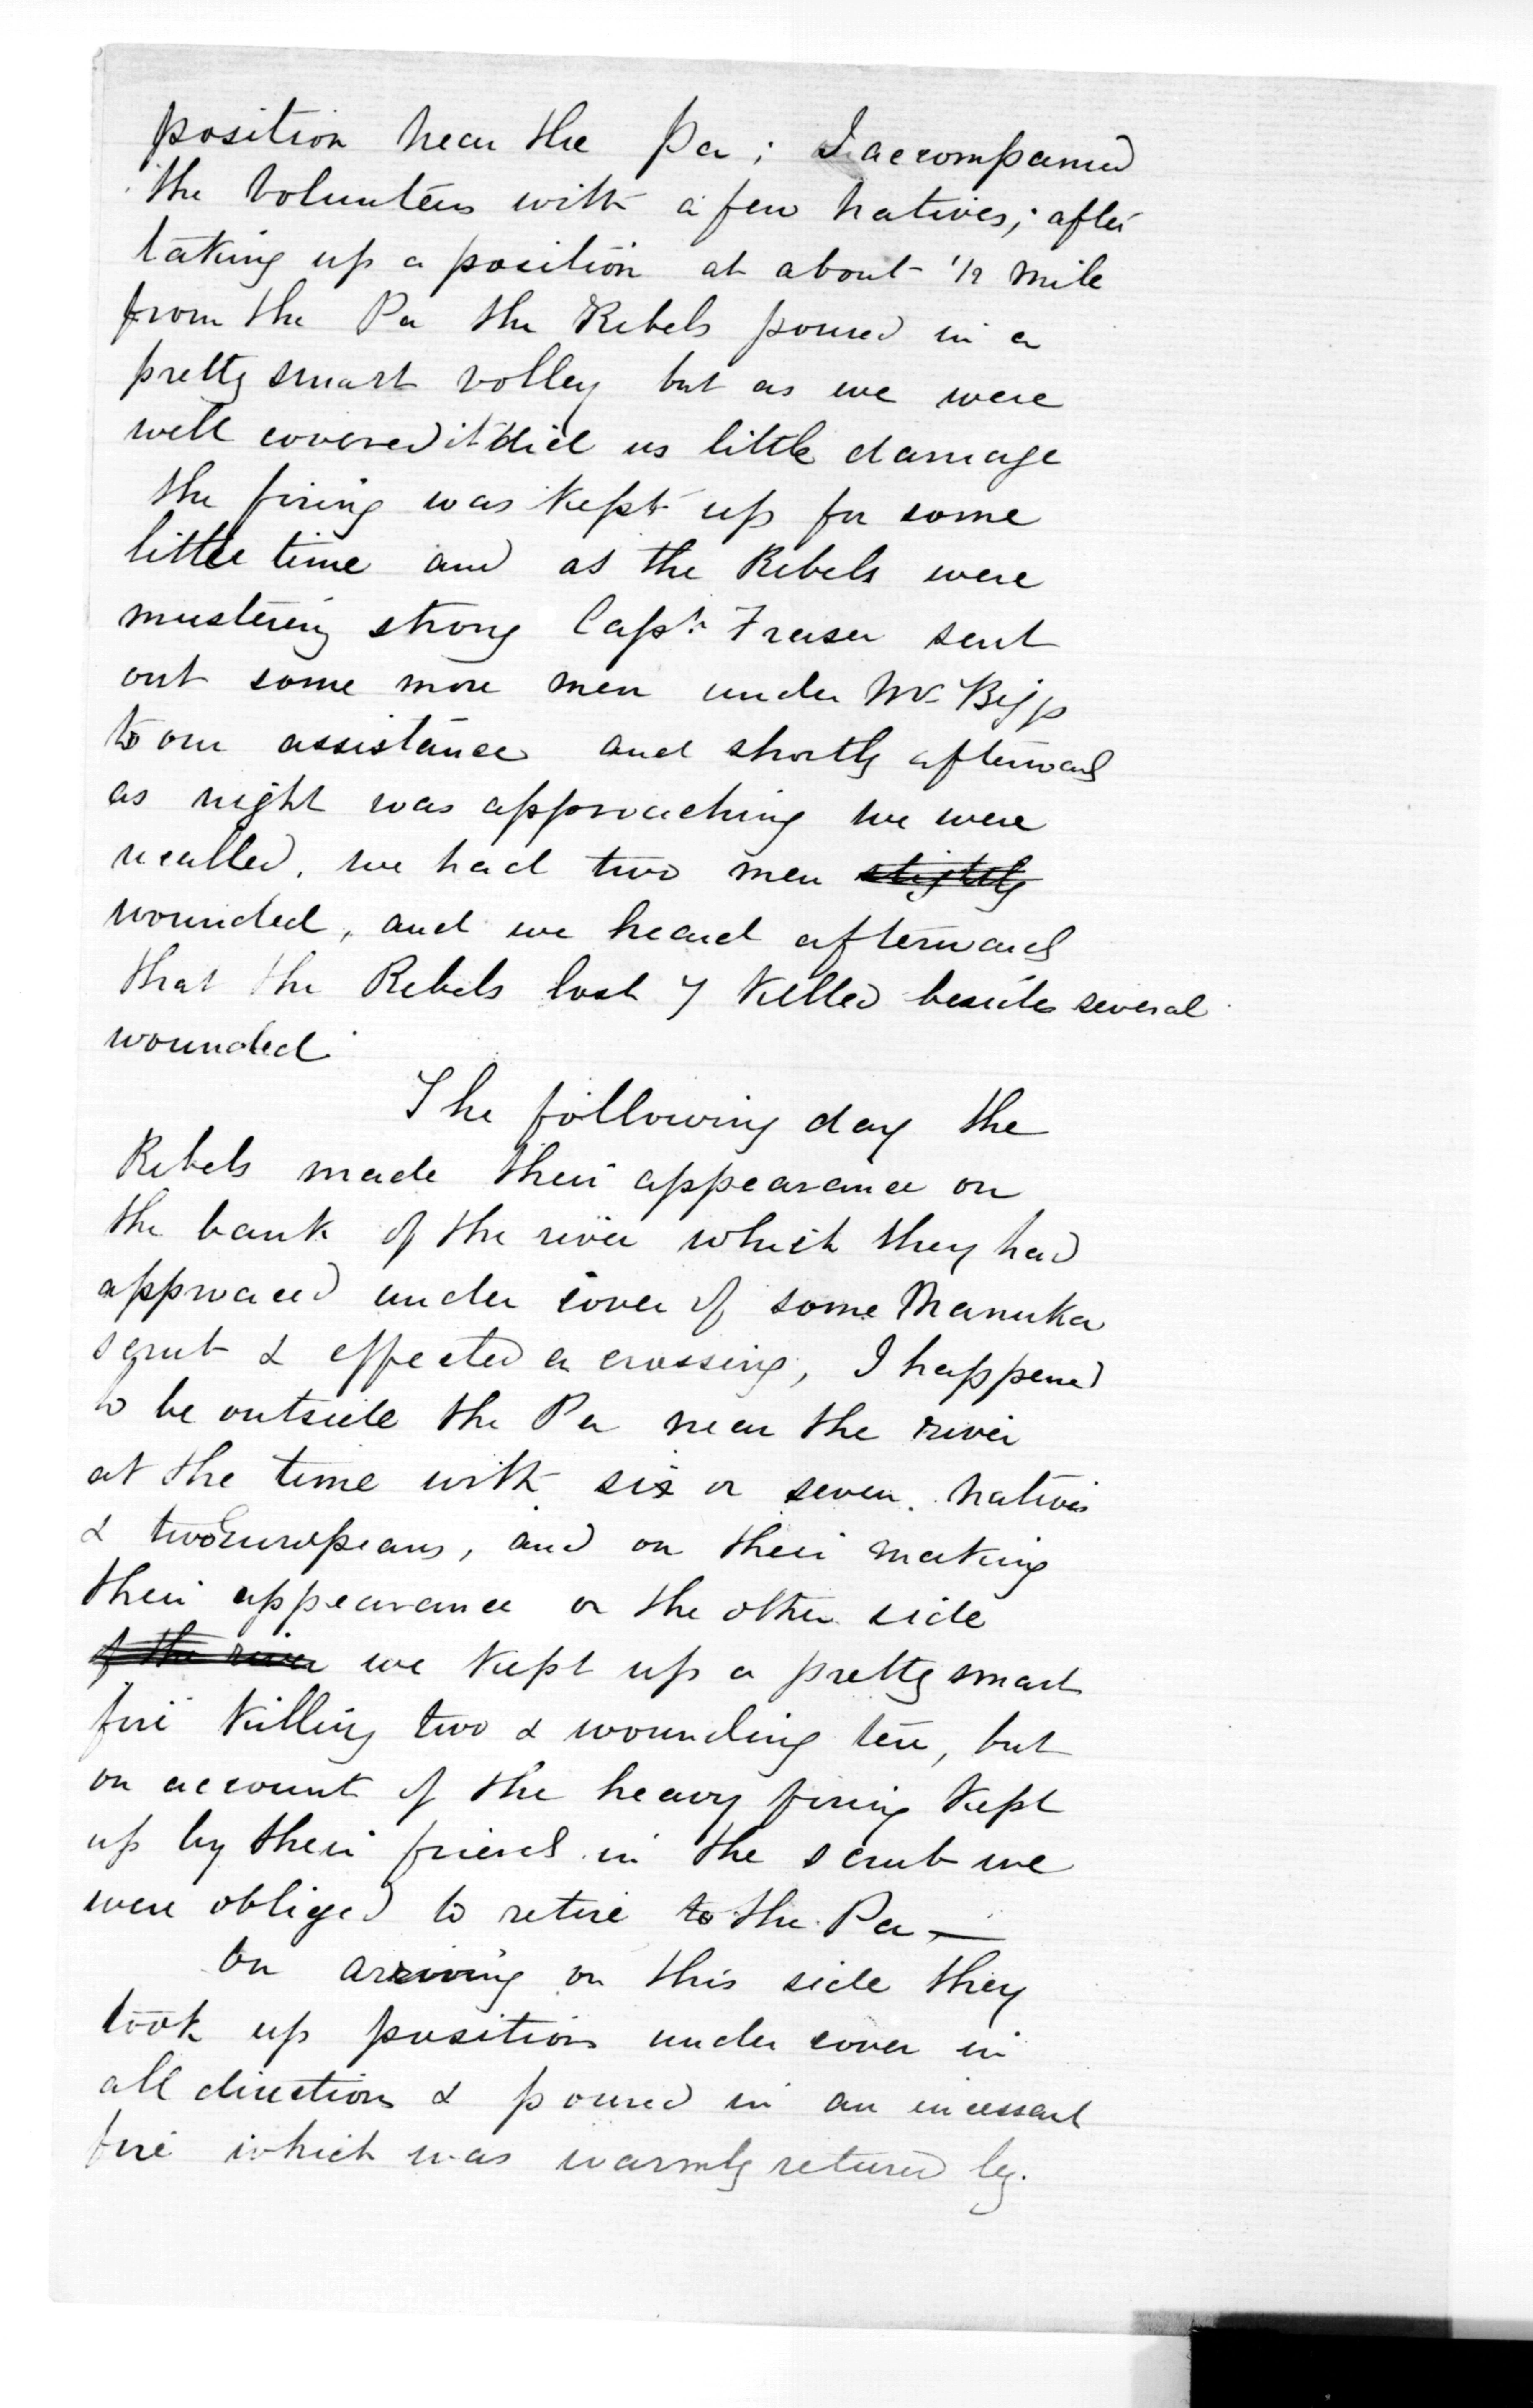 position near the Pa; I accompanied
the Volunteers with a few natives; after
taking up a position at about 1/2 mile
from the Pa the Rebels poured in a
pretty smart volley but as we were
well covered it did us little damage
the firing was kept up for some
little time and as the Rebels were
mustering strong Capt. Fraser sent
out some more men under Mr Biggs
to our assistance and shortly afterwards
as night was approaching we were
recalled, we had two men slightly
wounded, and we heard afterwards
that the Rebels lost 7 killed besides several
wounded.
The following day the
Rebels made their appearance on
the bank of the river which they had
approaced under cover of some Manuka
scrub & effected a crossing, I happened
to be outside the Pa near the river
at the time with six or seven natives
& two Europeans, and on their making
their appearance on the other side
of the river we kept up a pretty smart
fire killing two & wounding ten, but
on account of the heavy firing kept
up by their friends in the scrub we
were obliged to retire to the Pa —
On arriving on this side they
took up positions under cover in
all directions & poured in an incessant
fire which was warmly returned by.